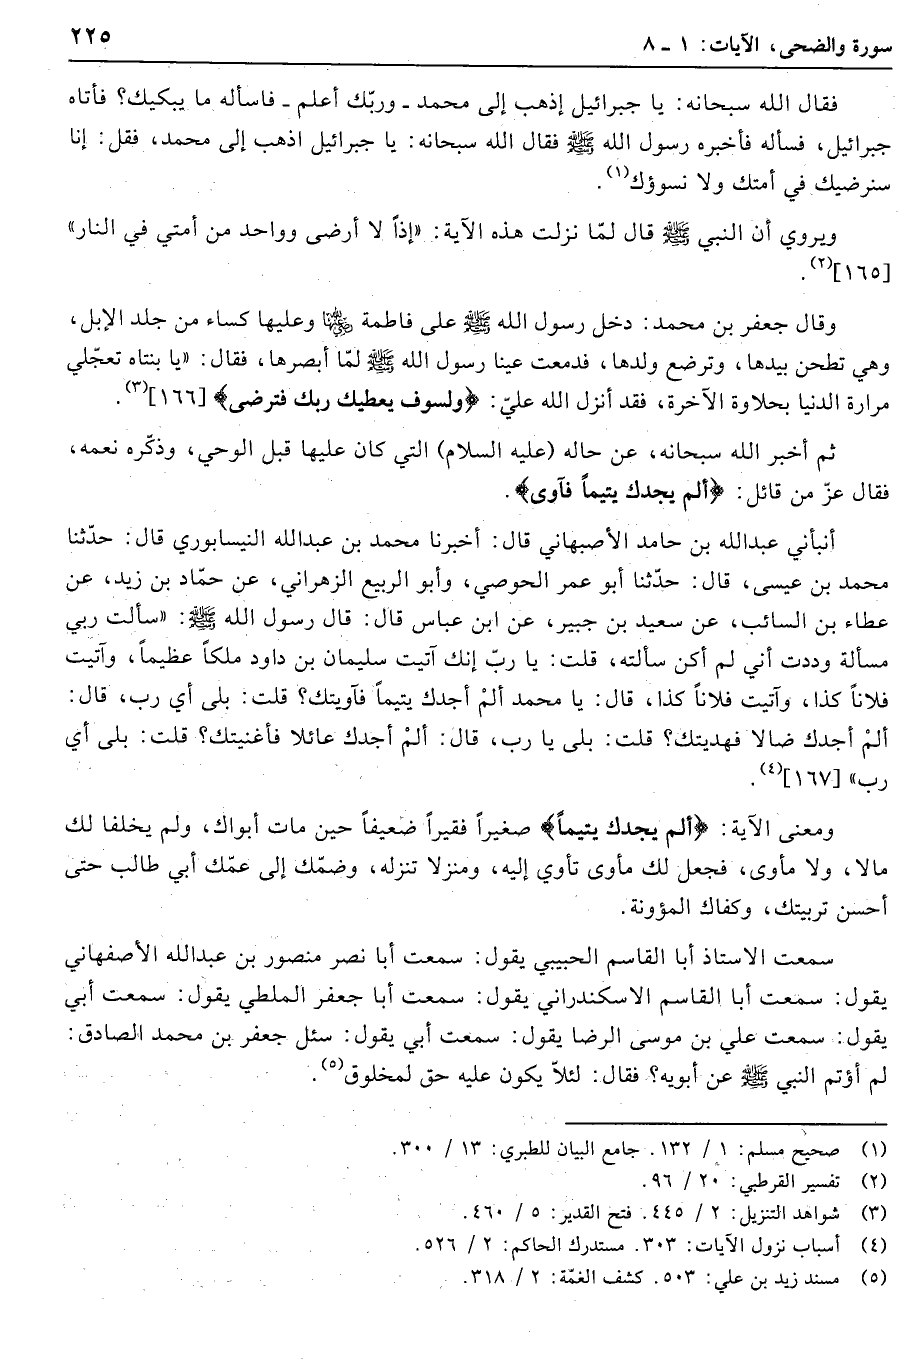 سورة والضحى، الآيات: ١ ـ ٨
٢٢٥
فقال الله سبحانه: يا جبرائيل إذهب إلى محمد ـ وربّك أعلم ـ فاسأله ما يبكيك؟ فأتاه
جبرائيل، فسأله فأخبره رسول الله ﷺ فقال الله سبحانه: يا جبرائيل اذهب إلى محمد، فقل: إنا
سنرضيك في أمتك ولا نسوؤك(١).
ويروي أن النبي ﷺ قال لمّا نزلت هذه الآية: «إذاً لا أرضى وواحد من أمتي في النار»
[١٦٥](٢).
وقال جعفر بن محمد: دخل رسول الله ﷺ على فاطمة وعليها كساء من جلد الإبل،
وهي تطحن بيدها، وترضع ولدها، فدمعت عينا رسول الله ﷺ لمّا أبصرها، فقال: «يا بنتاه تعجّلي
مرارة الدنيا بحلاوة الآخرة، فقد أنزل الله عليّ: ﴿ولسوف يعطيك ربك فترضى﴾ [١٦٦](٣).
ثم أخبر الله سبحانه، عن حاله (عليه السلام) التي كان عليها قبل الوحي، وذكّره نعمه،
فقال عزّ من قائل: ﴿ألم يجدك يتيماً فآوى﴾.
أنبأني عبدالله بن حامد الأصبهاني قال: أخبرنا محمد بن عبدالله النيسابوري قال: حدّثنا
محمد بن عيسى، قال: حدّثنا أبو عمر الحوصي، وأبو الربيع الزهراني، عن حمّاد بن زيد، عن
عطاء بن السائب، عن سعيد بن جبير، عن ابن عباس قال: قال رسول الله ﷺ: «سألت ربي
مسألة وددت أني لم أكن سألته، قلت: يا ربّ إنك آتيت سليمان بن داود ملكاً عظيماً، وآتيت
فلاناً كذا، وآتيت فلاناً كذا، قال: يا محمد ألمْ أجدك يتيماً فآويتك؟ قلت: بلى أي رب، قال:
ألمْ أجدك ضالا فهديتك؟ قلت: بلى يا رب، قال: ألمْ أجدك عائلا فأغنيتك؟ قلت: بلى أي
رب» [١٦٧](٤).
ومعنى الآية: ﴿ألم يجدك يتيماً﴾ صغيراً فقيراً ضعيفاً حين مات أبواك، ولم يخلفا لك
مالا، ولا مأوى، فجعل لك مأوى تأوي إليه، ومنزلا تنزله، وضمّك إلى عمّك أبي طالب حتى
أحسن تربيتك، وكفاك المؤونة.
سمعت الاستاذ أبا القاسم الحبيبي يقول: سمعت أبا نصر منصور بن عبدالله الأصفهاني
يقول: سمعت أبا القاسم الاسكندراني يقول: سمعت أبا جعفر الملطي يقول: سمعت أبي
يقول: سمعت علي بن موسى الرضا يقول: سمعت أبي يقول: سئل جعفر بن محمد الصادق:
لم أؤتم النبي ﷺ عن أبويه؟ فقال: لئلاّ يكون عليه حق لمخلوق(٥).
(١) صحيح مسلم: ١ / ١٣٢. جامع البيان للطبري: ١٣ / ٣٠٠.
(٢) تفسير القرطبي: ٢٠ / ٩٦.
(٣) شواهد التنزيل: ٢ / ٤٤٥. فتح القدير: ٥ / ٤٦٠.
(٤) أسباب نزول الآيات: ٣٠٣. مستدرك الحاكم: ٢ / ٥٢٦.
(٥) مسند زيد بن علي: ٥٠٣. كشف الغمّة: ٢ / ٣١٨.